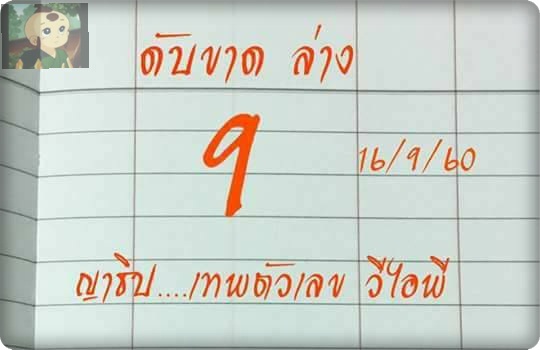 ดับขาด ล่าง
9
16/9/60
ญาธิป....เทพตัวเลข วีไอพี